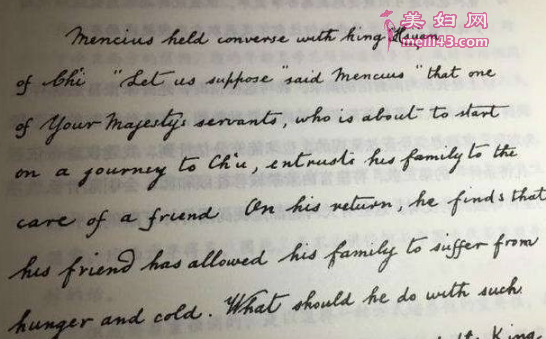 美妇网
meili43.com
Mencius held converse with king Hsuen
of Chi "Let us suppose" said Mencius "that one
of Your Majesty's servants, who is about to start
on a journey to Ch'u, entrusts his family to the
care of a friend On his return, he finds that
his friend has allowed his family to suffer from
hunger and cold. What should he do with such
King.